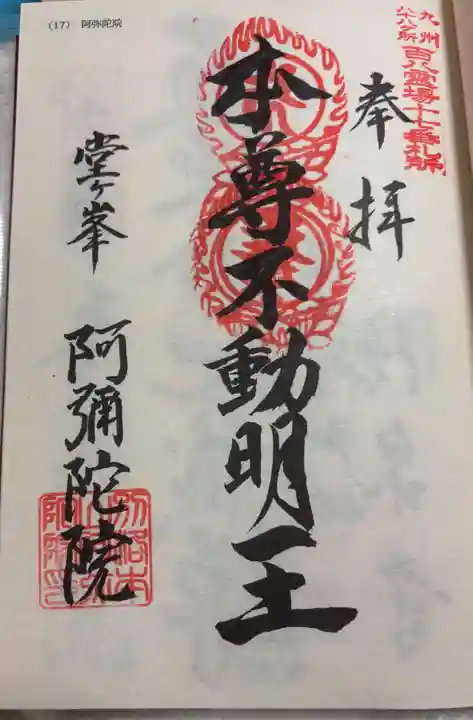 (17) 阿弥陀院
九州
八十八ヶ所
百八霊場十七番札所
奉拝
本尊不動明王
堂ヶ峯 阿彌陀院